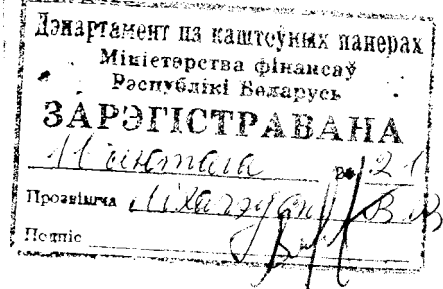 Дэпартамент па каштоўных паперах
Міністэрства фінансаў
Рэспублікі Беларусь
ЗАРЭГІСТРАВАНА
11 21
Прозвішча
Подпіс